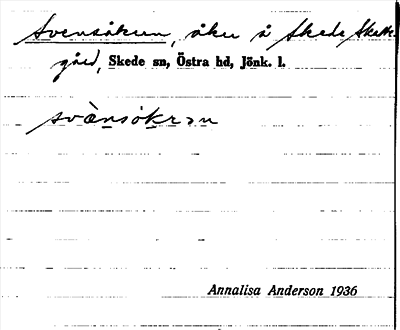 Svensåkern, åker å Skede Skatte-
gård, Skede sn, Östra hd, Jönk. l.
svὰnsókrən
Annalisa Anderson 1936